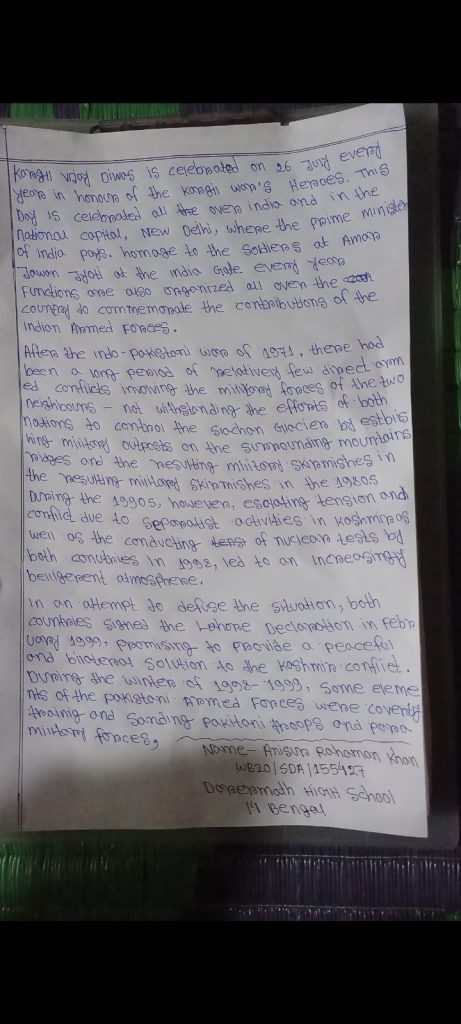 Kargil vijay Diwas is celebrated on 26 July every
year in honour of the Kargil war's Heroes. This
Day is celebrated all the over india and in the
national capital, New Delhi, where the prime minister
of india pays, homage to the Soldiers at Amar
Jawan Jyoti at the india Gate every year
Functions are also organized all over the
country to commemorate the contributions of the
Indian Armed Forces.
After the indo-pakistani war of 1971, there had
been a long period of relatively few direct arm
ed conflicts involving the military forces of the two
neighbours - not withstanding the efforts of both
nations to control the siachan Glacier by estblis
hing military outposts on the surrounding mountains
ridges and the resulting military skirmishes in
the resulting military skirmishes in the 1980s
During the 1990s, however, escalating tension and
conflict due to separatist activities in kashmir as
well as the conducting test of nuclear tests by
both conutries in 1998, led to an increasingly
belligerent atmosphere.
In an attempt to defuse the situation, both
countries signed the Lahore Declaration in Febr
uary 1999, promising to provide a peaceful
and bilateral solution to the kashmir conflict.
During the winter of 1998-1999, some eleme
nts of the pakistani Armed Forces were covertly
trainig and Sanding pakitani troops and para
military forces,
Name- Anisur Rahaman Khan
WB20/SDA/155427
High School
Bengal